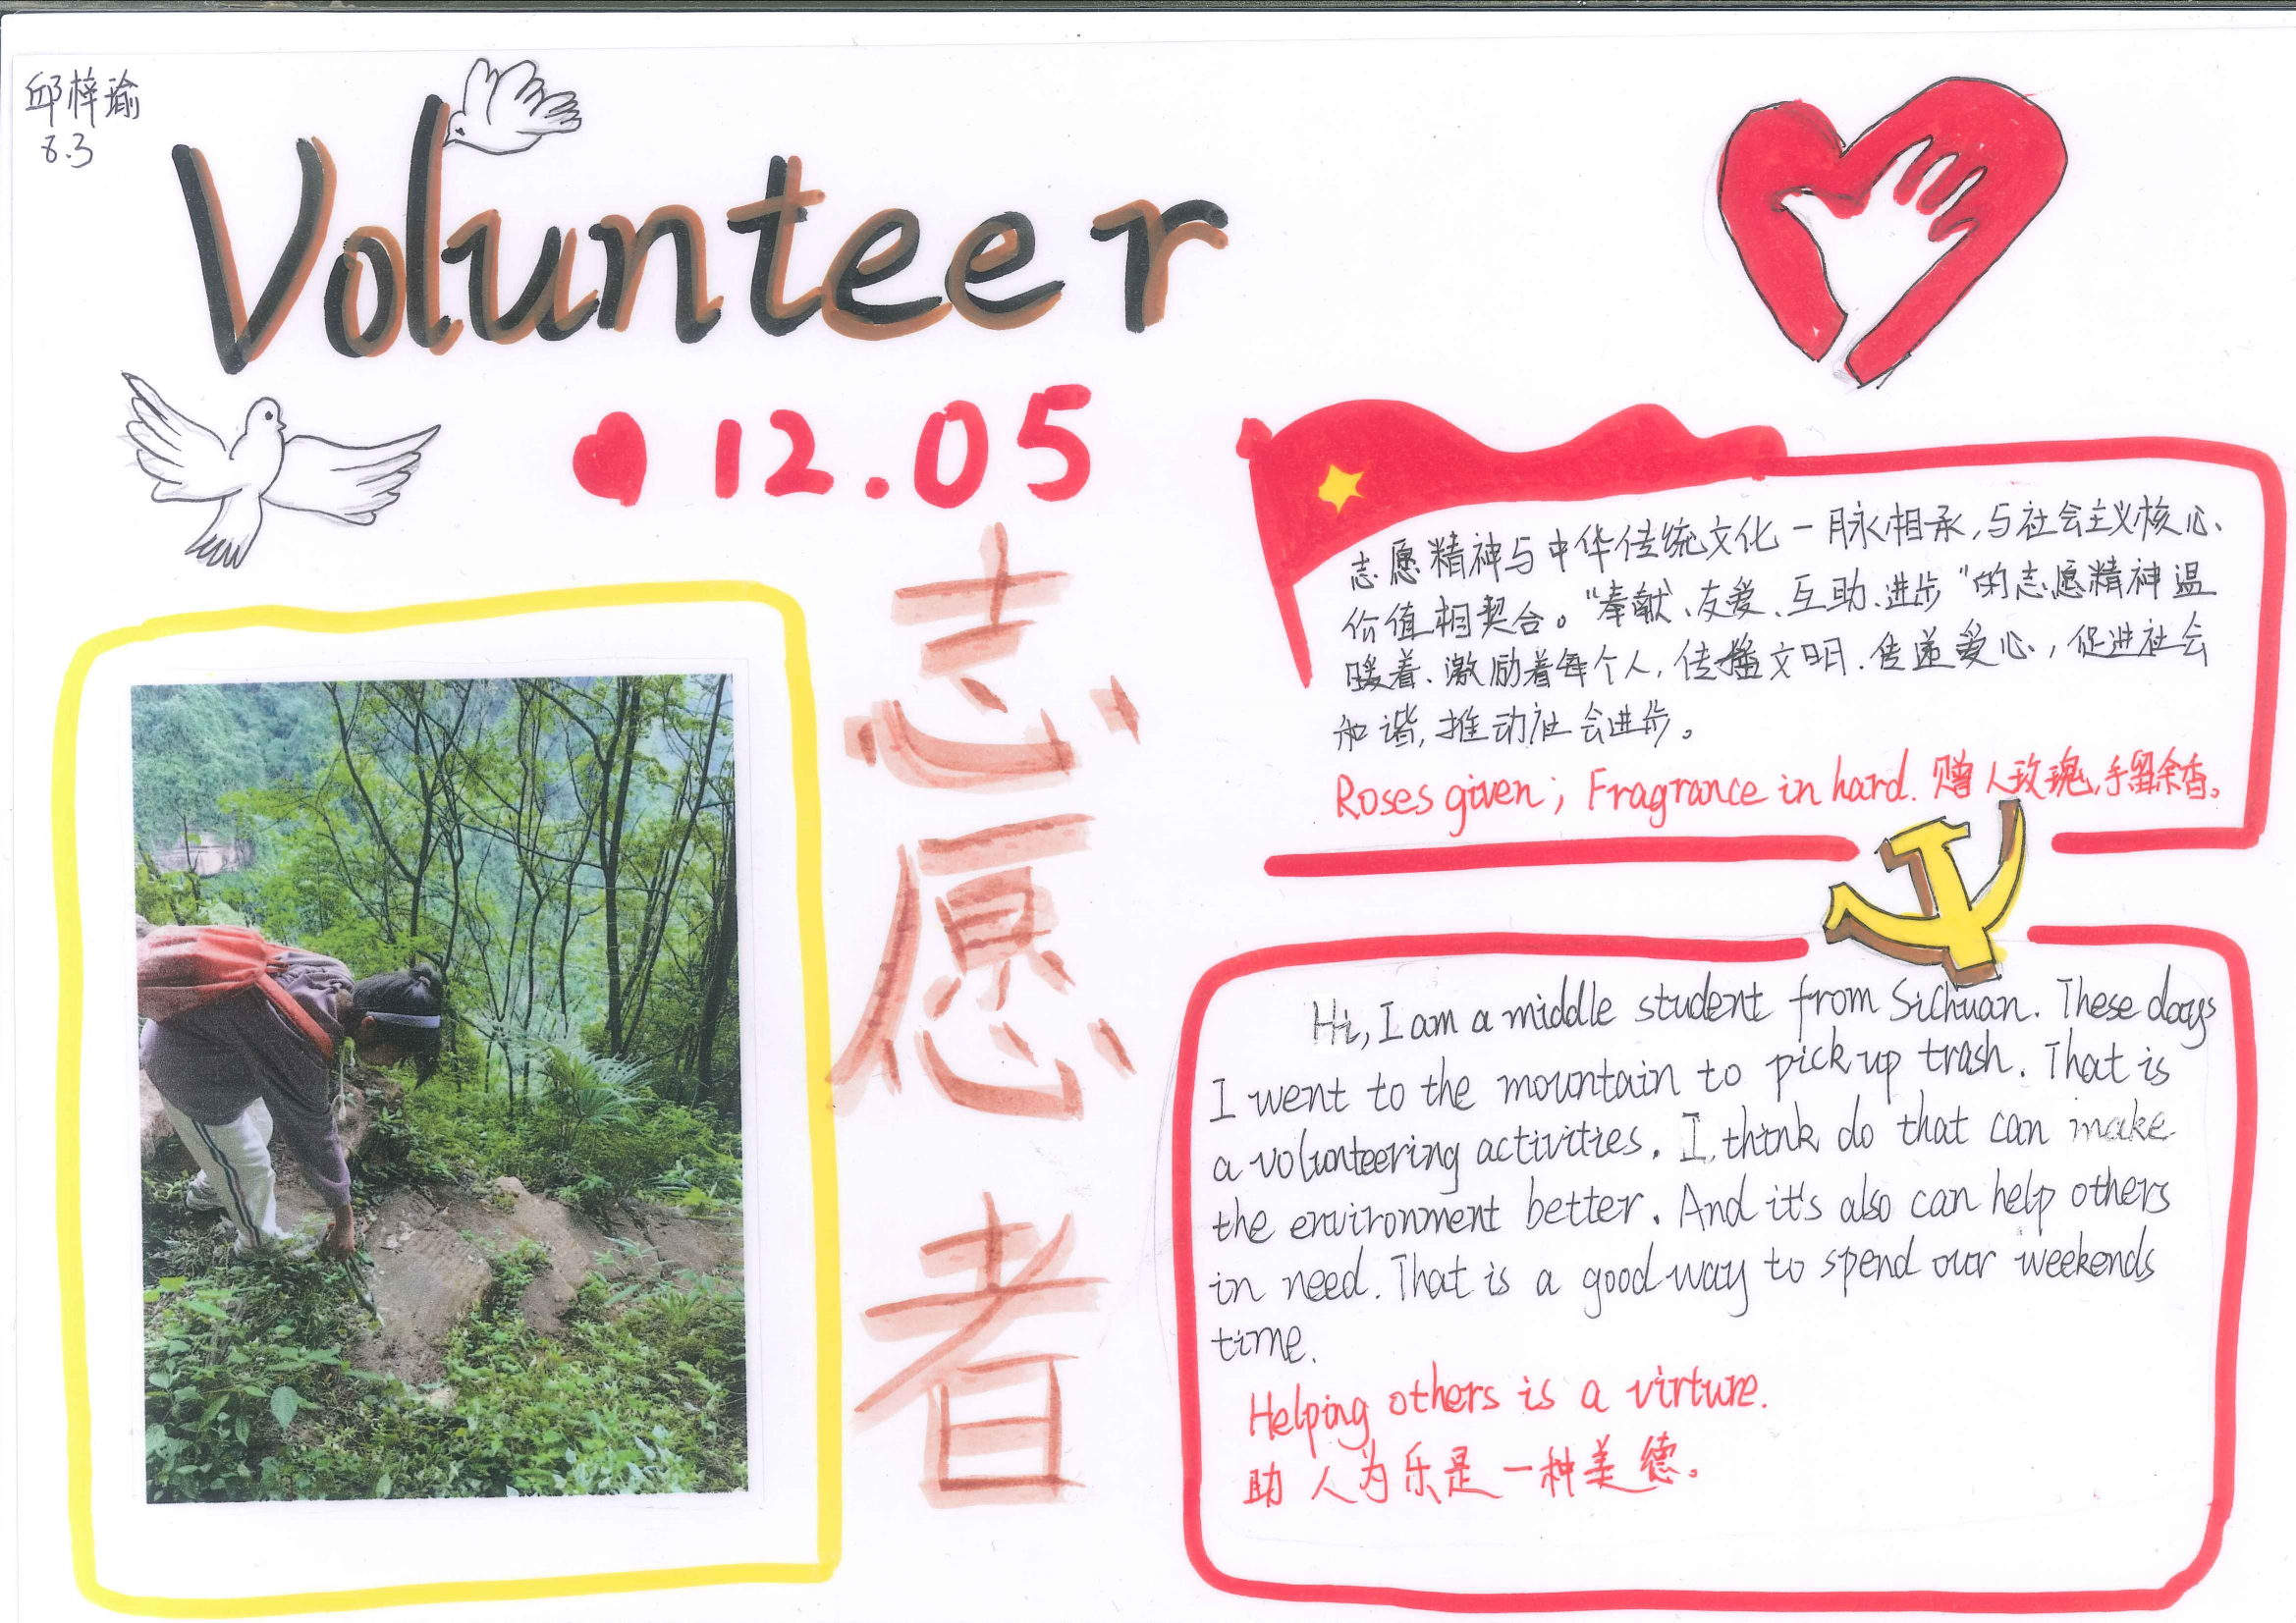 邱梓瑜
8.3
Volunteer
12.05
志愿者
志愿精神与中华传统文化一脉相承,与社会主义核心
价值相契合。“奉献、友爱、互助、进步”的志愿精神温
暖着、激励着每个人,传播文明、传递爱心,促进社会
和谐,推动社会进步。
Roses given; Fragrance in hard. 赠人玫瑰,手留余香。
Hi, I am a middle student from Sichuan. These days
I went to the mountain to pick up trash. That is
a volunteering activities. I think do that can make
the environment better. And it's also can help others
in need. That is a good way to spend our weekends
time.
Helping others is a virture.
助人为乐是一种美德。